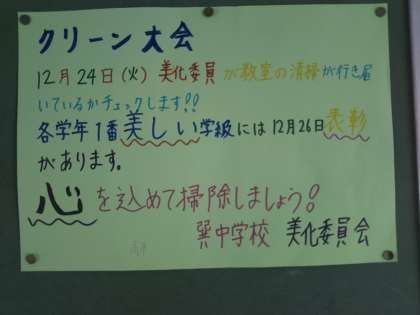 クリーン大会
12月24日(火)美化委員が教室の清掃が行き届
いているかチェックします!!
各学年1番美しい学級には12月26日表彰
があります。
心を込めて掃除しましょう!
巽中学校 美化委員会